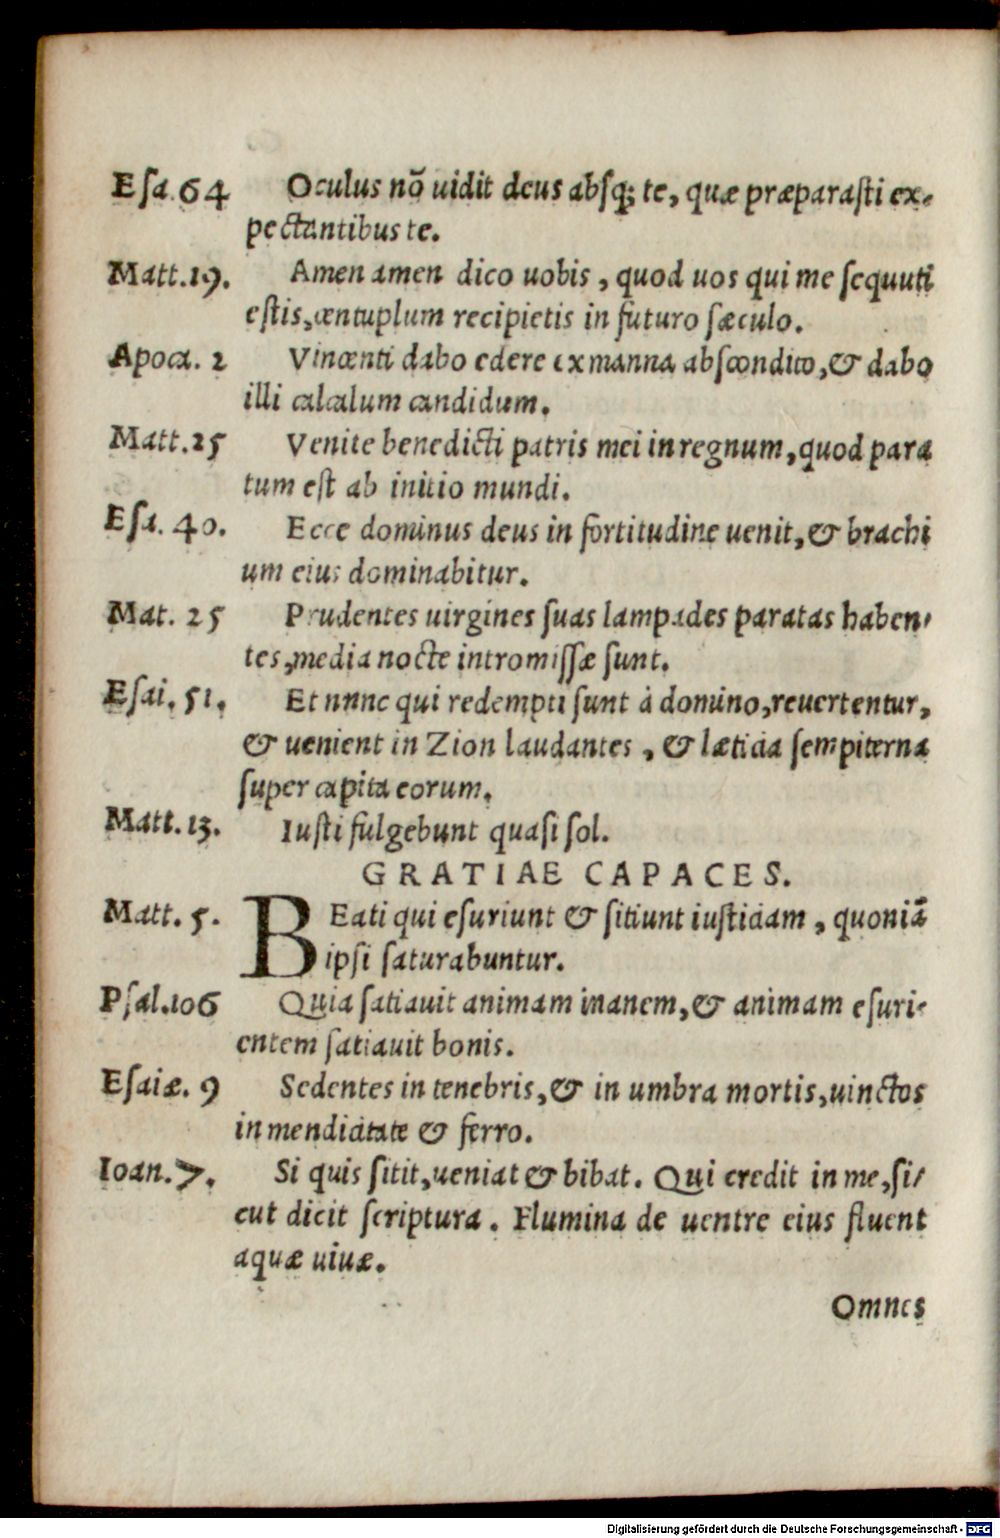 Eſa.64 Oculus nõ uidit deus abſq; te, quæ præparaſti ex-
pectantibus te.
Matt.19. Amen amen dico uobis, quod uos qui me ſequuti
eſtis, centuplum recipietis in futuro ſæculo.
Apoca. 2 Vincenti dabo edere ex manna abſcondito, & dabo
illi calculum candidum.
Matt.25 Venite benedicti patris mei in regnum, quod para
tum eſt ab initio mundi.
Eſa. 40. Ecce dominus deus in fortitudine uenit, & brachi
um eius dominabitur.
Mat. 25 Prudentes uirgines ſuas lampades paratas haben-
tes, media nocte intromiſſæ ſunt.
Eſai. 51. Et nnnc qui redempti ſunt à domino, reuertentur,
& uenient in Zion laudantes, & læticia ſempiterna
ſuper capita eorum.
Matt. 13. Iuſti fulgebunt quaſi ſol.
GRATIAE CAPACES.
Matt. 5. BEati qui eſuriunt & ſitiunt iuſticiam, quoniã
ipſi ſaturabuntur.
Pſal.106 Quia ſatiauit animam inanem, & animam eſuri-
entem ſatiauit bonis.
Eſaiæ. 9 Sedentes in tenebris, & in umbra mortis, uinctos
in mendicitate & ferro.
Ioan. 7. Si quis ſitit, ueniat & bibat. Qui credit in me, ſi-
cut dicit ſcriptura. Flumina de uentre eius fluent
aquæ uiuæ.
Omnes
Digitalisierung gefördert durch die Deutsche Forschungsgemeinschaft - DFG